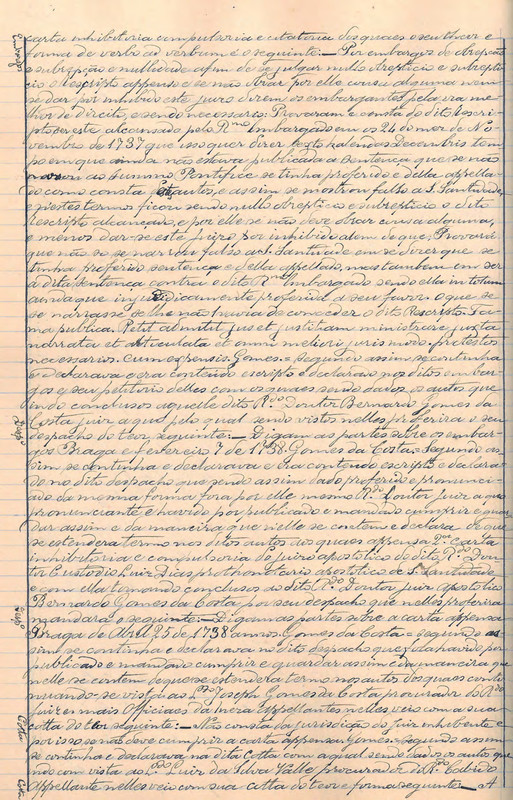 Embargº
carta inhibitoria compulsoria e citatoria dos quaes o seu theor e
forma de verbo ad verbum é o seguinte:— Por embargos de obrepção
e subrepção e nullidade afim de se julgar nullo obrepticio e subrepti-
cio o rescripto appenso e se não obrar por elle cousa alguma nem
se dar por inhibido este juizo dizem os embargantes pela via me-
lhor de direito, e sendo necessario: Provará e consta do dito rescri-
pto ser este alcansado pelo Rmo Embargado em os 24 do mez de No-
vembro de 1737 que isso quer dizer Sexto kalendas Decembris tem-
po em que ainda não estava publicada a Sentença que se nar-
rou ao Summo Pontifice se tinha proferido e della appella-
do como consta autos, e assim se mostrou falso a S. Santidade,
e nestes termos ficou sendo nullo obrepticio e subrepticio o dito
rescripto alcançado, e por elle se não deve obrar cousa alguma,
e menos dar-se este juizo por inhibido alem de que: Provará
que não só se narrou falso a S. Santidade em se dizer que se
tinha proferido sentença e della appellado, mas tambem em ser
a dita Sentença contra o dito Rmo Embargado sendo ella in totum
ainda que injuridicamente proferida a seu favor o que se
se narrasse de lhe não havia de conceder o dito Rescripto. Fa-
ma publica. Petit admitti jus et justitiam ministrare juxta
narrata et articulata et omni meliori juris modo. protestos
necessarios. Cum expensis Gomes.= segundo assim se continha
e declarava e era contendo escripto e declarado nos ditos embar-
gos e seu petitorio delles com os quaes sendo dados os autos que
indo conclusos aquelle dito R.do Doutor Bernardo Gomes da
Costa juiz a quo pelo qual sendo vistos nelles proferira o seu
Despº
despacho do teor seguinte:— Digam as partes sobre os embar-
gos Braga e fevereiro 7 de 1738. Gomes da Costa. Segundo as-
sim se continha e declarava e era contendo escripto e declara-
do no dito despacho que sendo assim dado proferido e pronunci-
ado da mesma forma fora por elle mesmo R.do Doutor juiz a quo
pronunciante e havido por publicado e mandado cumprir e guar-
dar assim e da maneira que nelle se contem e declara de que
se estendera termo nos ditos autos as quaes appensa a carta
inhibitoria e compulsoria do juizo apostolico do dito R.do Dou-
tor Custodio Luiz Dias prothonotario apostolico de S. Santidade
e com ella tornando conclusos ao dito R.do Doutor juiz apostolico
Bernardo Gomes da Costa por seu despacho que nelles proferira
Despº
mandara o seguinte:— Digam as partes sobre a carta appensa
Braga de Abril 25 de 1738 annos. Gomes da Costa= segundo as-
sim se continha e declarava no dito despacho que fôra havido por
publicado e mandado cumprir e guardar assim e da maneira que
nelle se contem de que se estendera termo nos autos dos quaes conti-
nuando-se vista ao L.do Joseph Gomes da Costa procurador do R.do
Juiz e mais Officiaes da meza appellantes nelles veio com a sua
Cotta
cotta do teor seguinte:— Não consta da jurisdição do juiz inhibente e
por isso se não deve cumprir a carta appensa Gomes= segundo assim
se continha e declarava na dita Cotta com a qual sendo dados os autos que
nos com vista ao L.do Luiz da Silva Valle procurador do R.do Cabido
Cott.
appellante nelles veio com sua cotta do teor e forma seguinte:— A